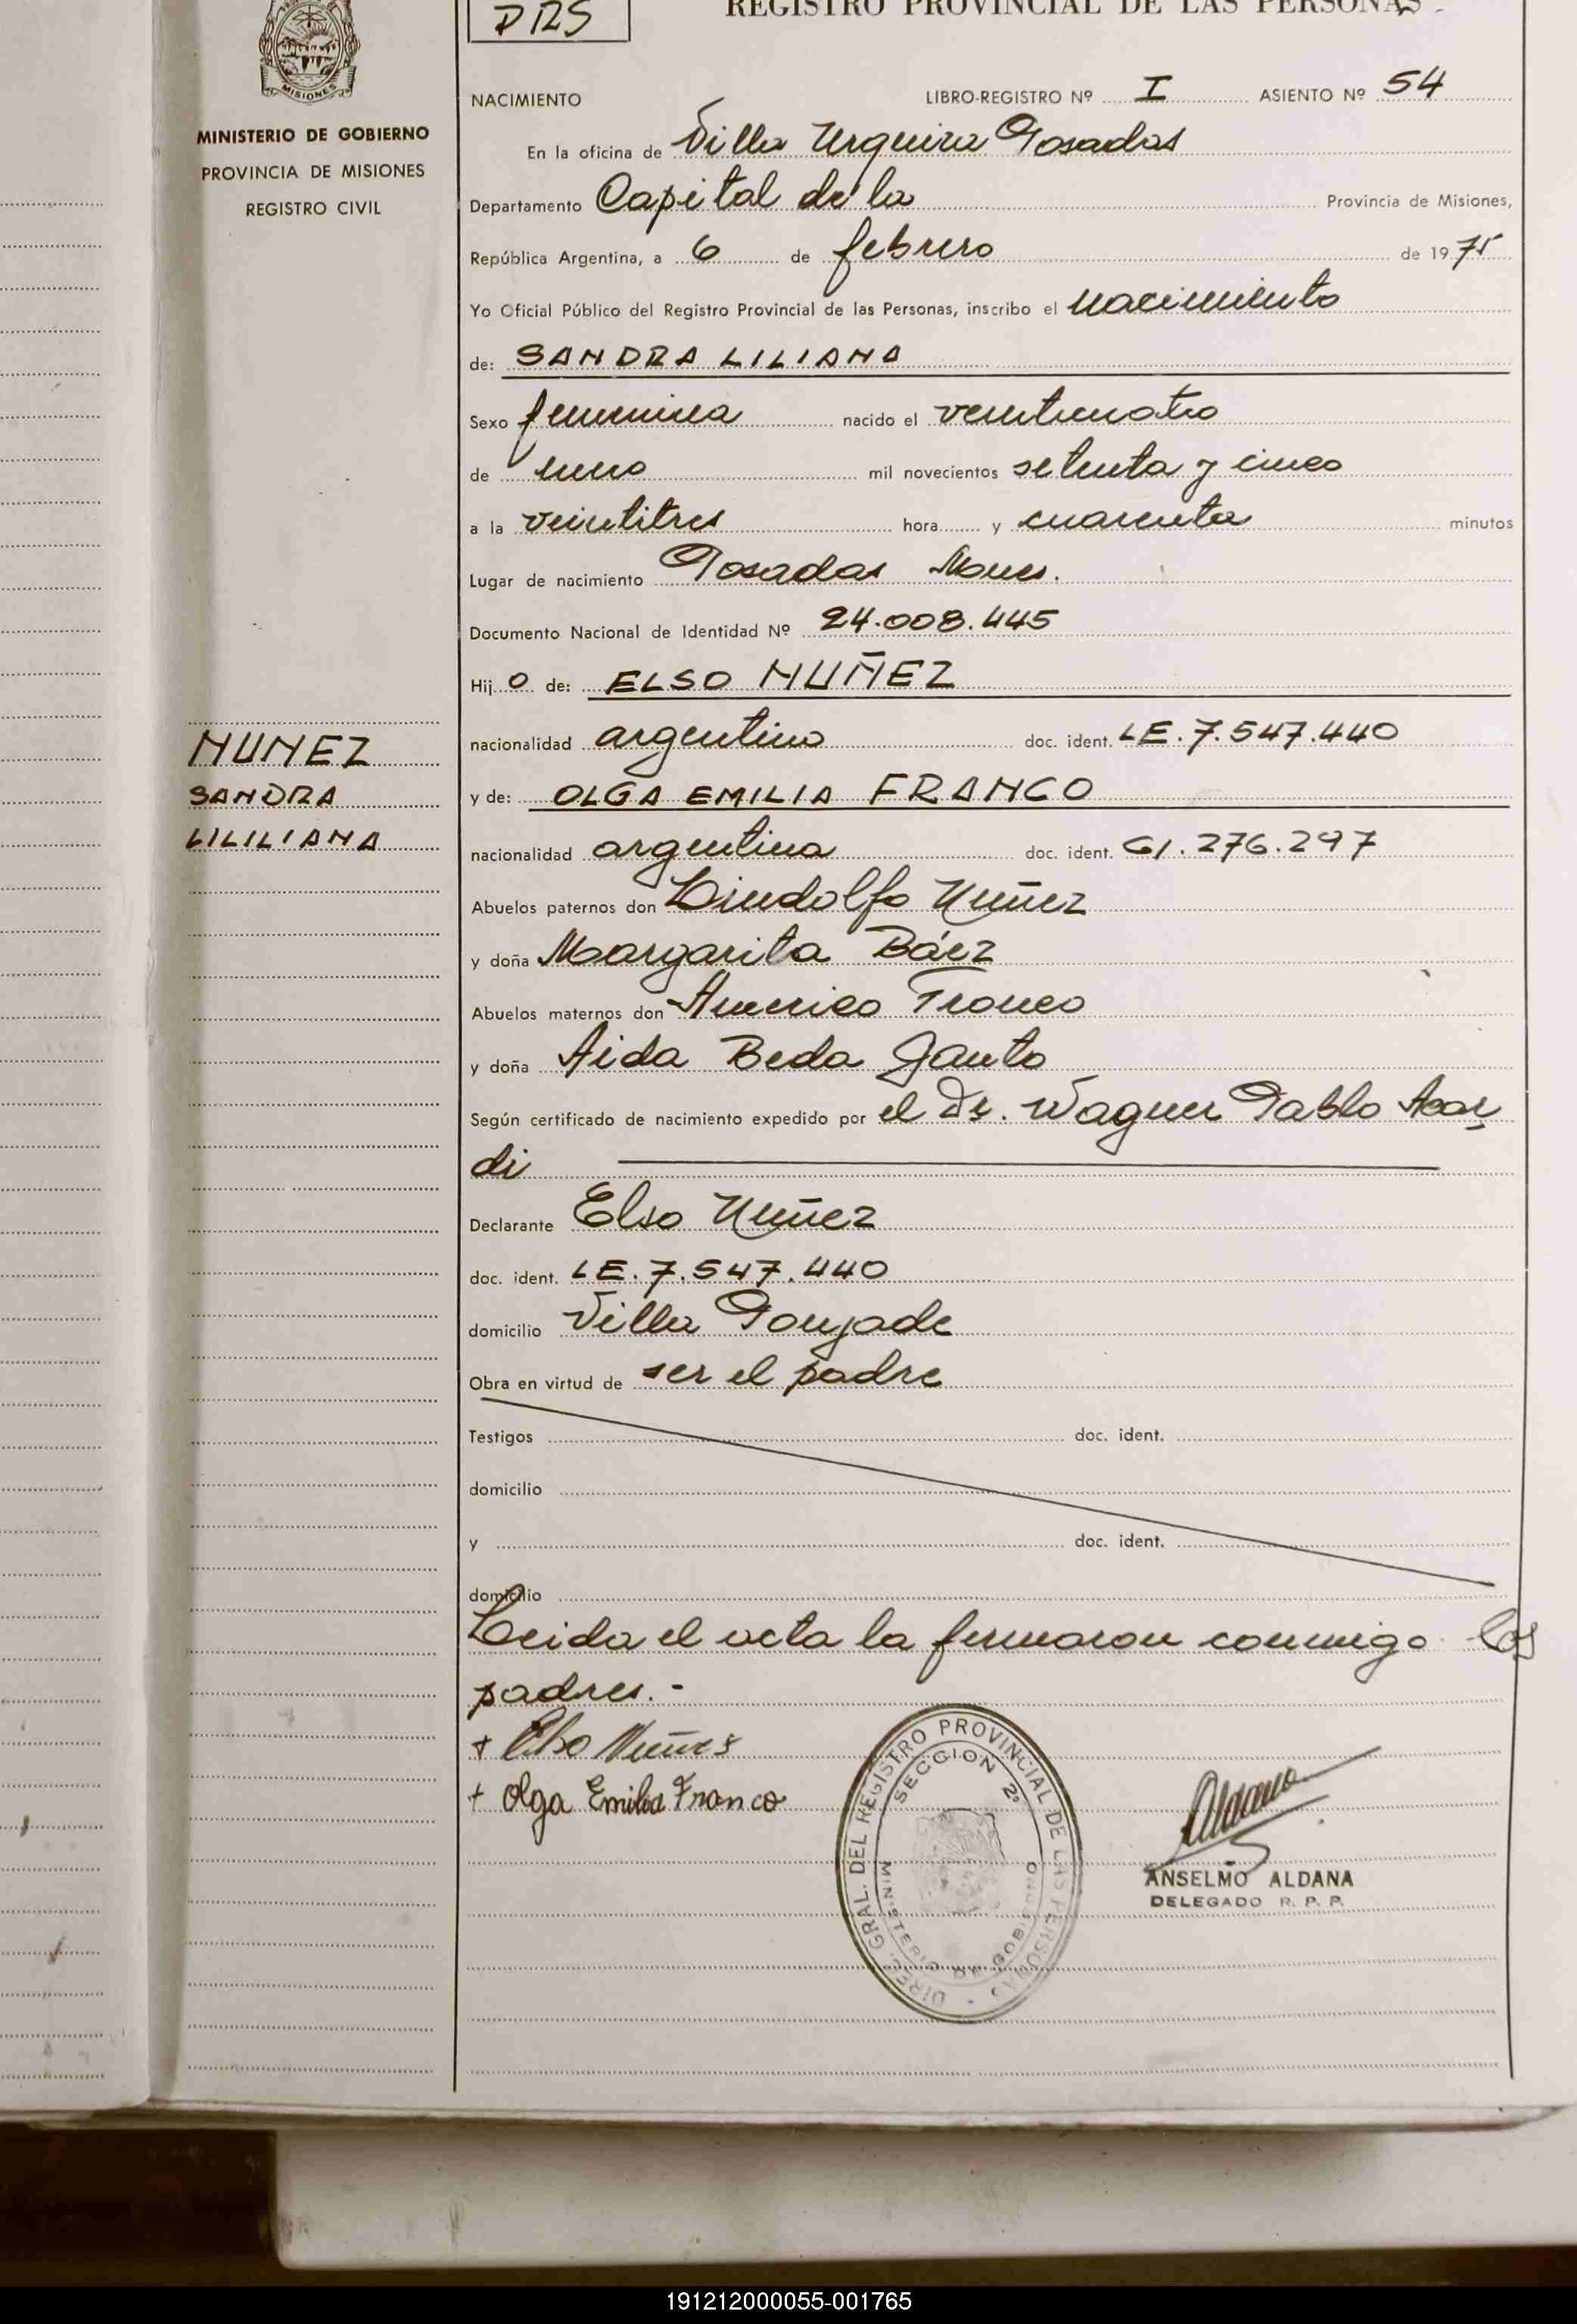 DRS
REGISTRO PROVINCIAL DE LAS PERSONAS
MISIONES
MINISTERIO DE GOBIERNO
PROVINCIA DE MISIONES
REGISTRO CIVIL
NUNEZ
SANDRA
LILILIANA
NACIMIENTO LIBRO-REGISTRO Nº I ASIENTO Nº 54
En la oficina de Villa Urquiza Posadas
Departamento Capital de la Provincia de Misiones,
República Argentina, a 6 de febrero de 1975
Yo Oficial Público del Registro Provincial de las Personas, inscribo el nacimiento
de: SANDRA LILIANA
Sexo femenina nacido el veinticuatro
de enero mil novecientos setenta y cinco
a la veintitres hora y cuarenta minutos
Lugar de nacimiento Posadas Mnes.
Documento Nacional de Identidad Nº 24.008.445
Hijo de: ELSO NUÑEZ
nacionalidad argentino doc. ident. LE.7.547.440
y de: OLGA EMILIA FRANCO
nacionalidad argentina doc. ident. 61.276.297
Abuelos paternos don Lindolfo Nuñez
y doña Margarita Báez
Abuelos maternos don Americo Franco
y doña Aida Beda Gauto
Según certificado de nacimiento expedido por el Dr. Wagner Pablo Acar
di
Declarante Elso Nuñez
doc. ident. LE.7.547.440
domicilio Villa Poujade
Obra en virtud de ser el padre
Testigos doc. ident.
domicilio
y doc. ident.
domicilio
Leida el acta la firmaron conmigo los
padres.-
+ Elso Nuñes
+ Olga Emilia Franco
DIREC. GRAL. DEL REGISTRO PROVINCIAL DE LAS PERSONAS -
SECCION 2ª
MINISTERIO DE GOBIERNO
Aldana
ANSELMO ALDANA
DELEGADO R. P. P.
191212000055-001765